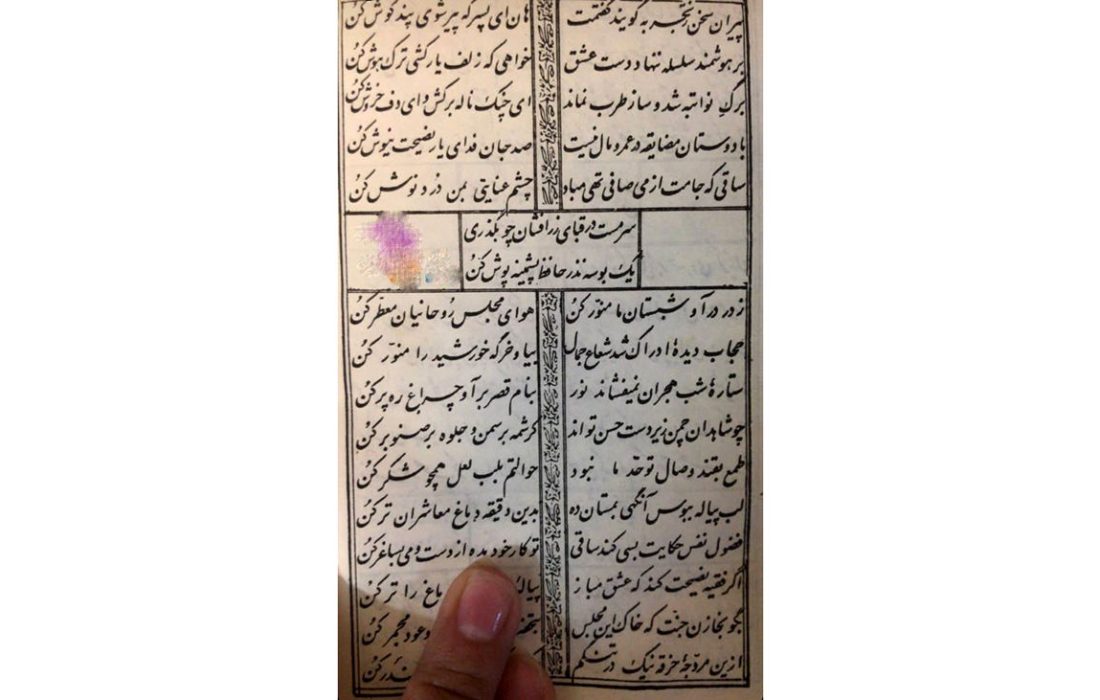 پیران سخن بتجربه گویند گفتمت هان ای پسر که پیر شوی پند گوش کن
بر هوشمند سلسله ننهاد دست عشق خواهی که زلف یار کشی ترک هوش کن
برگ نوا تبه شد و ساز طرب نماند ای چنگ ناله برکش و ای دف خروش کن
با دوستان مضایقه در عمر و مال نیست صد جان فدای یار نصیحت نیوش کن
ساقی که جامت از می صافی تهی مباد چشم عنایتی بمن دُرد نوش کن
سرمست در قبای زرافشان چو بگذری
یک بوسه نذر حافظ پشمینه پوش کن
ز در درآ و شبستان ما منور کن هوای مجلس روحانیان معطر کن
حجاب دیدهٔ ادراک شد شعاع جمال بیا و خرگه خورشید را منور کن
ستارهٔ شب هجران نمیفشاند نور ببام قصر برآ و چراغ ره بر کن
چو شاهدان چمن زیردست حسن تو اند کرشمه بر سمن و جلوه بر صنوبر کن
طمع بقند وصال تو حد ما نبود حوالتم بلب لعل همچو شکر کن
لب پیاله ببوس آنگهی بمستان ده بدین دقیقه دماغ معاشران تر کن
فضول نفس حکایت بسی کند ساقی تو کار خود مده از دست و می بساغر کن
اگر فقیه نصیحت کند که عشق مباز پیاله باغ را تر کن
بگو بخازن جنت که خاک این مجلس بتحفه و عود مجمر کن
ازین مزوجهٔ خرقه نیک در تنگم کن